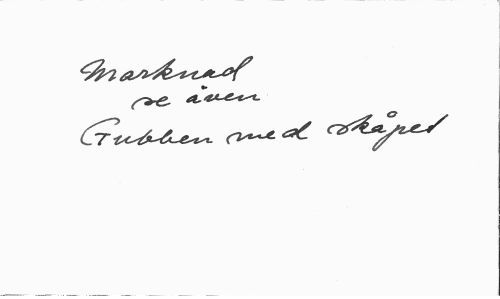 Marknad
se även
Gubben med skåpet